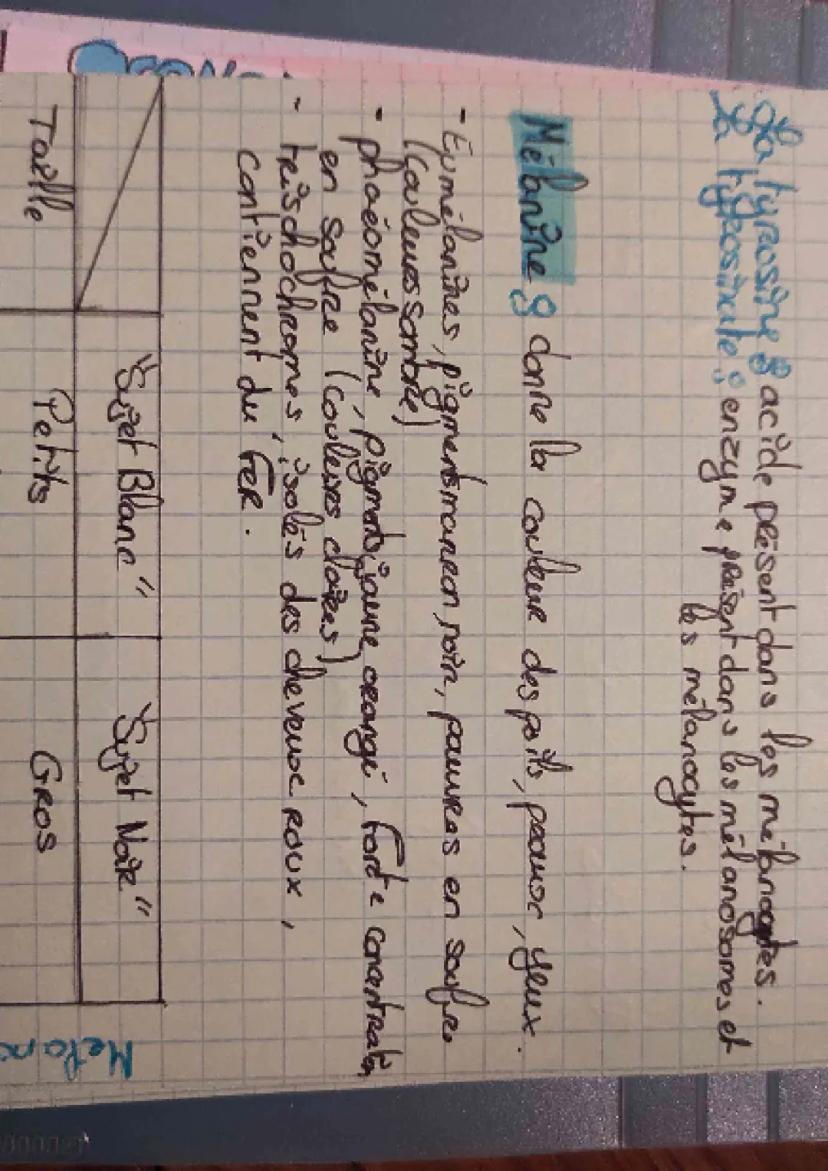 La tyrosine : acide présent dans les mélanocytes.
La tyrosinase : enzyme présent dans les mélanosomes et
les mélanocytes.
Mélanine : donne la couleur des poils, peaux, yeux.
- Eumélanines, pigments marron noir, pauvres en soufre
(couleurs sombre)
- phaéomélanine, pigments jaune orangé, forte concentration
en soufre (couleurs claires)
- trischochromes, isolés des cheveux roux,
contiennent du fer.
"Sujet Blanc" "Sujet Noir"
Taille Petits Gros
Melano